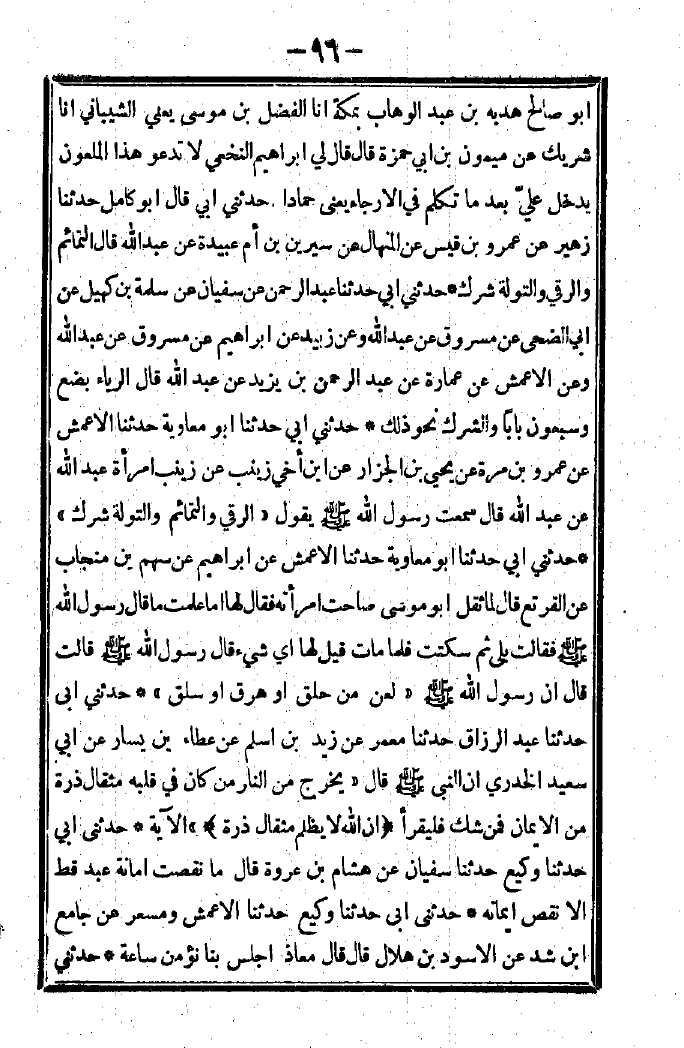 — ٩٦ —
ابو صالح هدبه بن عبد الوهاب بمكة انا الفضل بن موسى يعني الشيباني انا
شريك عن ميمون بن ابي حمزة قال قال لي ابراهيم النخمي لا تدعو هذا الملعون
يدخل عليّ بعد ما تكلم في الارجاء يعنى حمادا . حدثني ابي قال ابو كامل حدثنا
زهير عن عمرو بن قيس عن المنهال عن سيرين بن أم عبيدة عن عبدالله قال التمائم
والرقي والتولة شرك * حدثني ابي حدثنا عبدالرحمن عن سفيان عن سلمة بن كهيل عن
ابي الضحى عن مسروق عن عبدالله وعن زبيد عن ابراهيم عن مسروق عن عبدالله
وعن الاعمش عن عمارة عن عبد الرحمن بن يزيد عن عبد الله قال الرياء بضع
وسبعون بابًا والشرك نحو ذلك * حدثني ابي حدثنا ابو معاوية حدثنا الاعمش
عن عمرو بن مرة عن يحيى بن الجزار عن ابن أخي زينب عن زينب امرأة عبد الله
عن عبد الله قال سمعت رسول الله ﷺ يقول « الرقي والتمائم والتولة شرك »
* حدثني ابي حدثنا ابو معاوية حدثنا الاعمش عن ابراهيم عن سهم بن منجاب
عن القرتع قال لما ثقل ابو موسى صاحت امرأته فقال لها اما علمت ما قال رسول الله
ﷺ فقالت بلى ثم سكتت فلما مات قيل لها اي شيء قال رسول الله ﷺ قالت
قال ان رسول الله ﷺ « لعن من حلق او هرق او سلق » * حدثني ابى
حدثنا عبد الرزاق حدثنا معمر عن زيد بن اسلم عن عطاء بن يسار عن ابي
سعيد الخدري ان النبي ﷺ قال « يخرج من النار من كان في قلبه مثقال ذرة
من الايمان فمن شك فليقرأ ﴿ ان الله لا يظلم مثقال ذرة ﴾ » الآية * حدثنى ابي
حدثنا وكيع حدثنا سفيان عن هشام بن عروة قال ما نقصت امانة عبد قط
الا نقص ايمانه * حدثنى ابى حدثنا وكيع حدثنا الاعمش ومسعر عن جامع
ابن شد عن الاسود بن هلال قال قال معاذ اجلس بنا نؤمن ساعة * حدثني